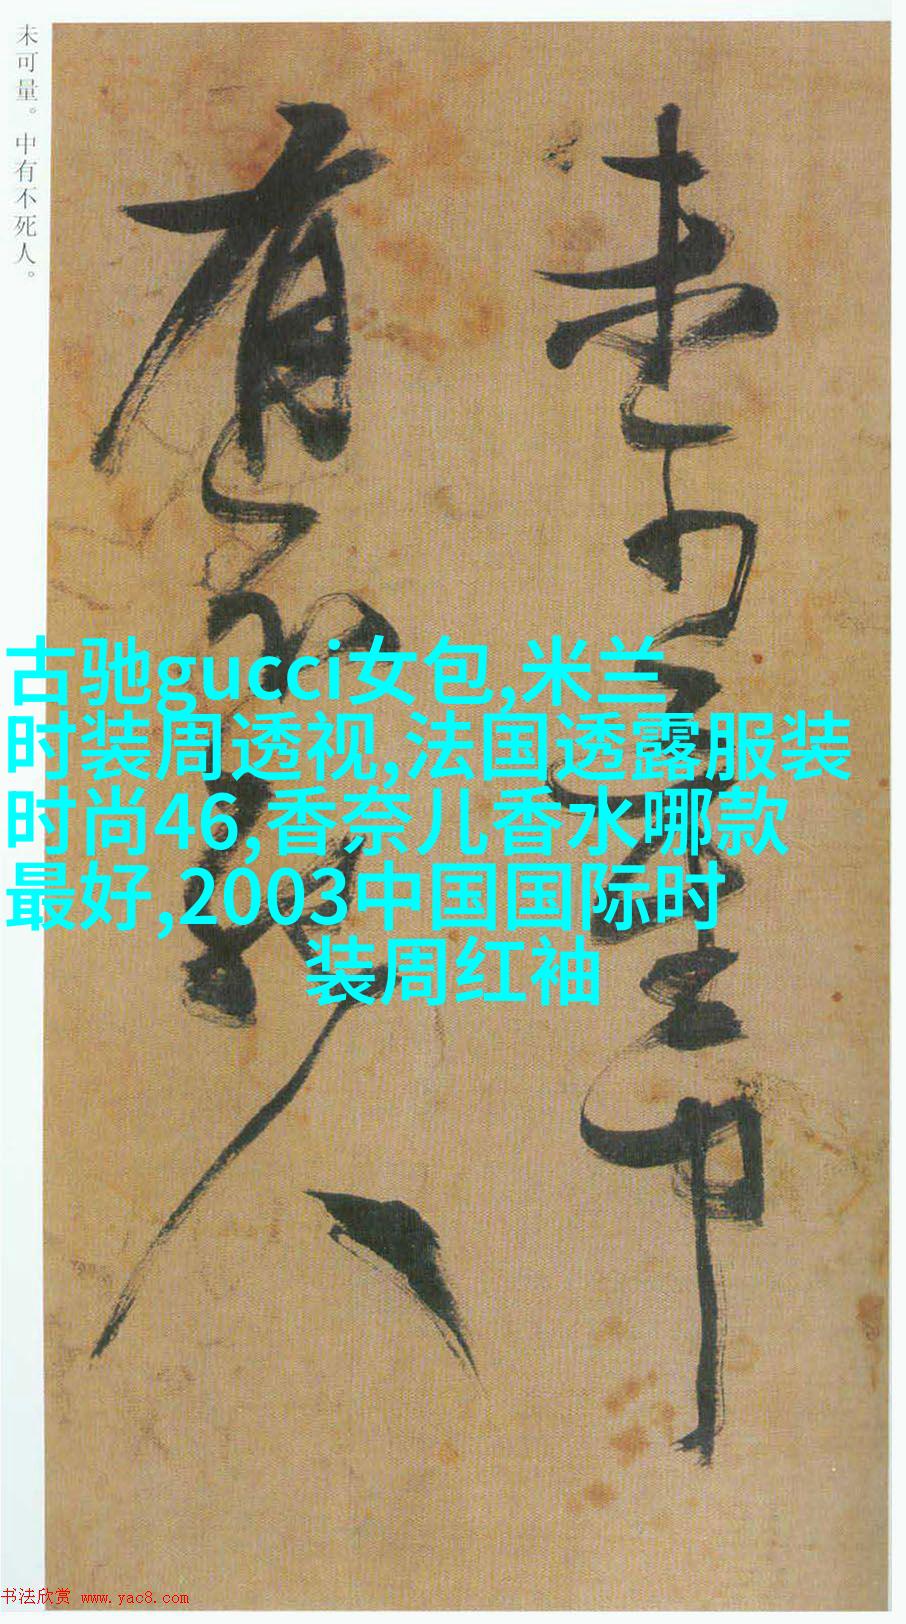 未可量。中有不死人。
未可量
中
有不死人
古驰gucci女包,米兰
时装周透视,法国透露服装
时尚46,香奈儿香水哪款
最好,2003中国国际时
装周红袖
书法欣赏 www.yac8.com